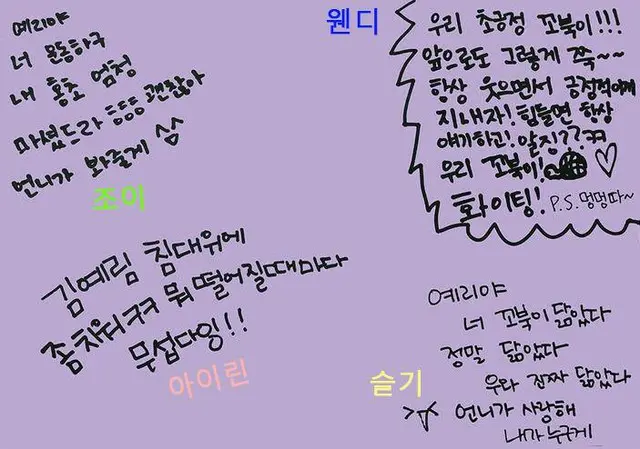 예리야
너 운동하구
내 홍초 엄청
마셨드라 흥흥흥 괜찮아
언니가 봐줄게 ^^
조이
웬디
우리 초긍정 꼬북이!!!
앞으로도 그렇게 쭉~~
항상 웃으면서 긍정적이게
지내자! 힘들면 항상
얘기하고! 알징??ㅋㅋ
우리 꼬북이!
화이팅! P.S. 멍멍따~
김예림 침대위에
좀 치워ㅋㅋ 뭐 떨어질때마다
무섭다잉!!
아이린
슬기
예리야
너 꼬북이 닮았다
정말 닮았다
우와 진짜 닮았다
언니가 사랑해
내가 누구게